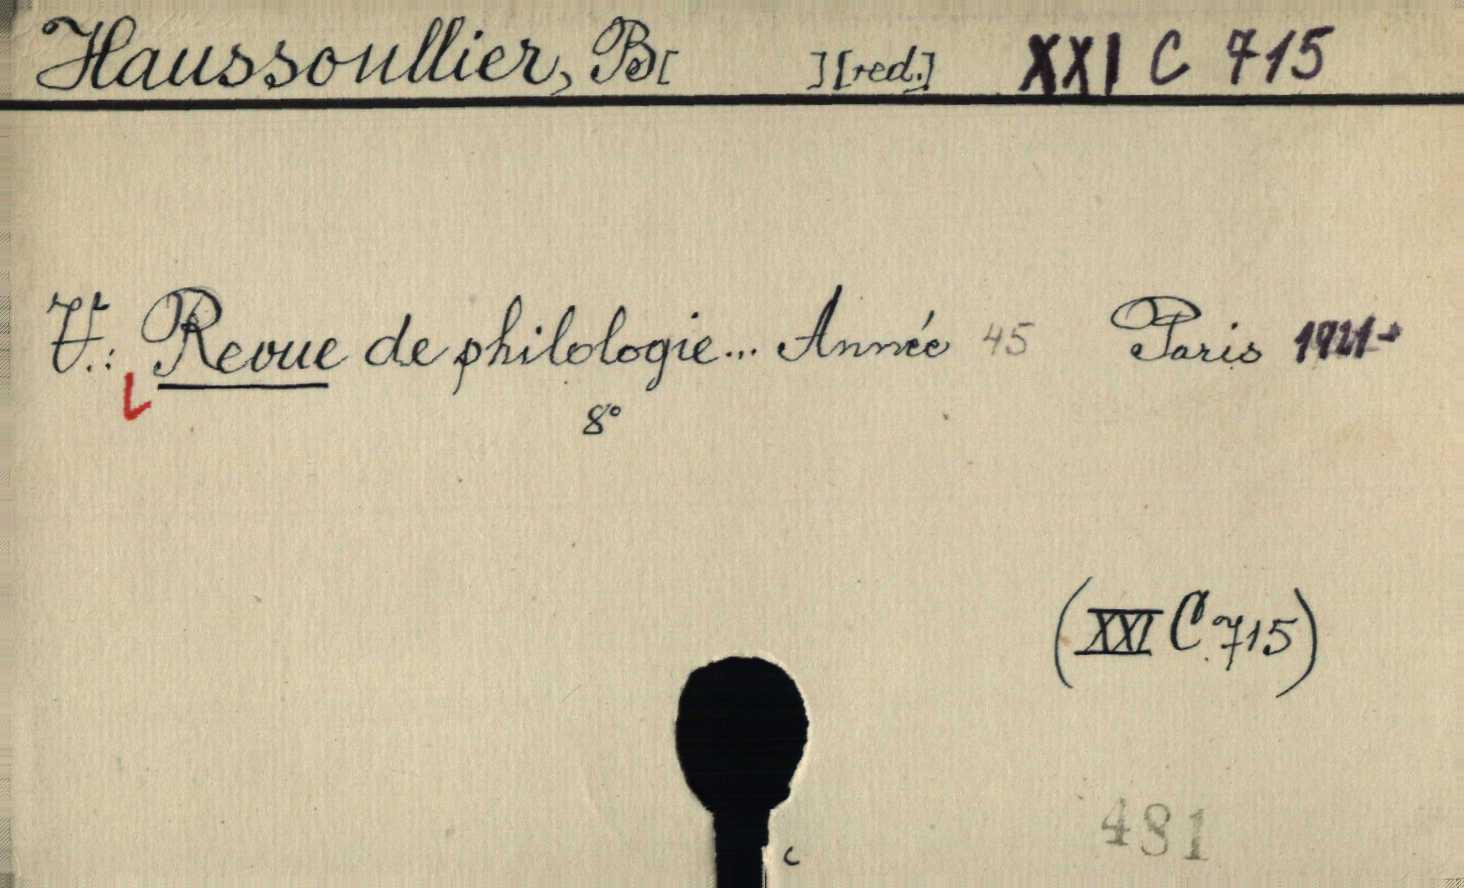 Haussoullier, B[ ][red.] XXI C 715
V.: Revue de philologie... Année 45 Paris 1921→
8°
(XXI C 715)
481
c